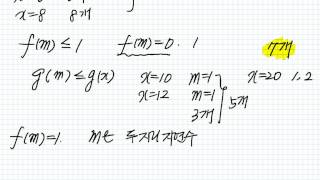 x=8 8개
f(m)≤1 f(m)=0. 1 7개
g(m)≤g(x) x=10 m=1 x=20 1, 2
x=12 m=1 5개
3개
f(m)=1. m은 두자리자연수